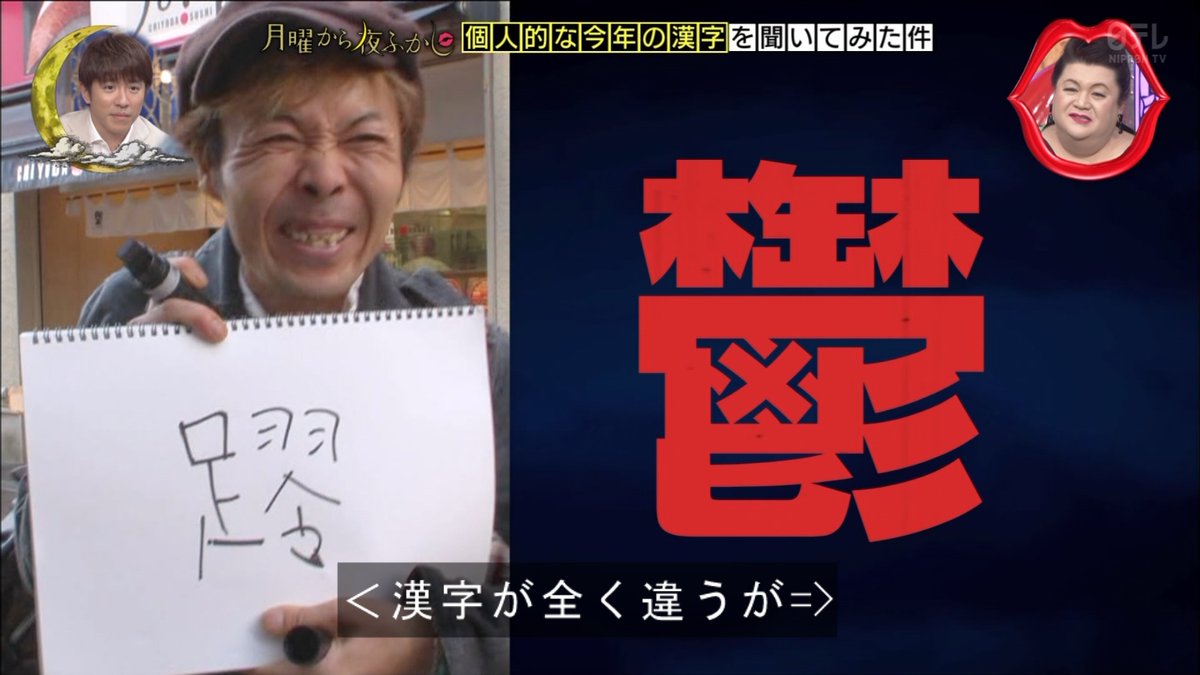 月曜から夜ふかし
個人的な今年の漢字を聞いてみた件
日テレ
NIPPON TV
CHIYODA SUSHI
鬱
<漢字が全く違うが=>